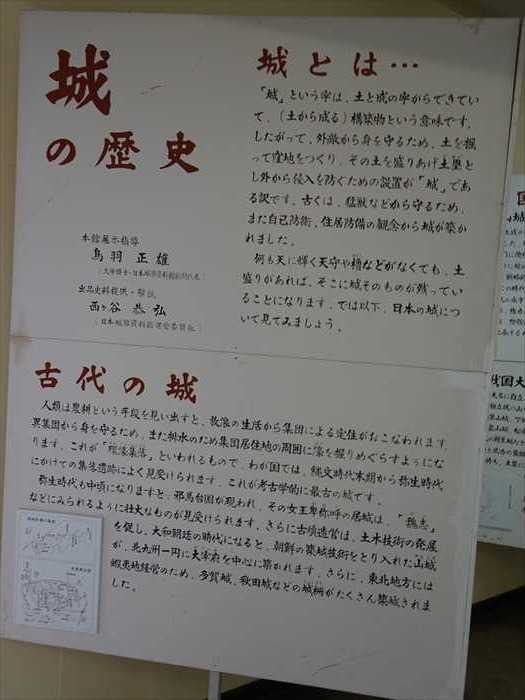 城
の歴史
本館展示指導
鳥羽正雄
出品史料提供・解説
西ヶ谷恭弘
城とは…
「城」という字は、土と成の字からできてい
て、(土から成る)構築物という意味です。
したがって、外敵から身を守るため、土を掘
って窪地をつくり、その土を盛りあげ土塁と
し外から侵入を防ぐための設置が「城」であ
る訳です。古くは、猛獣などから守るため、
また自己防衛、住居防備の観念から城が築か
れました。
何も天に輝く天守や櫓などがなくても、土
盛りがあれば、そこに城そのものが残ってい
ることになります。では以下、日本の城につ
いて見てみましょう。
古代の城
人類は農耕という手段を見い出すと、放浪の生活から集団による定住がおこなわれます。
異集団から身を守るため、また排水のため集団居住地の周囲に濠を掘りめぐらすようにな
ります。これが「環濠集落」といわれるもので、わが国では、縄文時代末期から弥生時代
にかけての集落遺跡によく見受けられます。これが考古学的に最古の城です。
弥生時代も中頃になりますと、邪馬台国が現われ、その女王卑弥呼の居城は、「魏志」
などにみられるように壮大なものが見受けられます。さらに古墳造営は、土木技術の発展
を促し、大和朝廷の時代になると、朝鮮の築城技術をとり入れた山城
が、北九州一円に大宰府を中心に築かれます。さらに、東北地方には
蝦夷地経営のため、多賀城、秋田城などの城柵がたくさん築城されま
した。